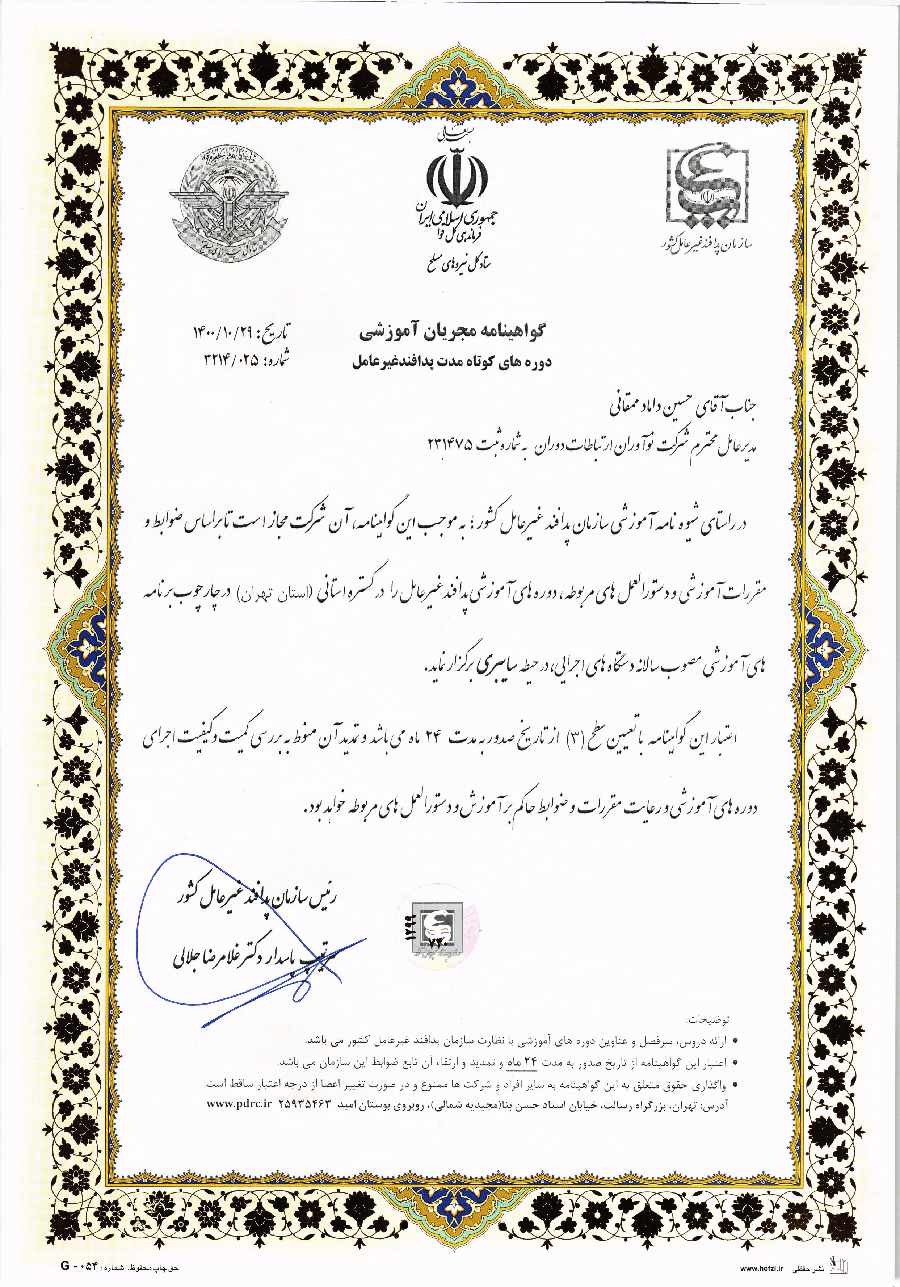 بسمه تعالی
جمهوری اسلامی ایران
فرماندهی کل قوا
ستاد کل نیروهای مسلح
سازمان پدافند غیرعامل کشور
گواهینامه مجریان آموزشی
دوره های کوتاه مدت پدافندغیرعامل
تاریخ: ۱۴۰۰/۱۰/۲۹
شماره: ۳۲۱۴/۰۲۵
جناب آقای حسین داماد ممقانی
مدیرعامل محترم شرکت نوآوران ارتباطات دوران به شماره ثبت ۲۳۱۴۷۵
در راستای شیوه نامه آموزشی سازمان پدافند غیرعامل کشور؛ به موجب این گواهینامه، آن شرکت مجاز است تا براساس ضوابط و
مقررات آموزشی و دستورالعمل های مربوطه، دوره های آموزشی پدافند غیرعامل را در گستره استانی (استان تهران) در چارچوب برنامه
های آموزشی مصوب سالانه دستگاه های اجرایی، در حیطه سایبری برگزار نماید.
اعتبار این گواهینامه با تعیین سطح (۳) از تاریخ صدور به مدت ۲۴ ماه می باشد و تمدید آن منوط به بررسی کمیت و کیفیت اجرای
دوره های آموزشی و رعایت مقررات و ضوابط حاکم بر آموزش و دستورالعمل های مربوطه خواهد بود.
رئیس سازمان پدافند غیرعامل کشور
سرتیپ پاسدار دکتر غلامرضا جلالی
توضیحات:
• ارائه دروس، سرفصل و عناوین دوره های آموزشی با نظارت سازمان پدافند غیرعامل کشور می باشد.
• اعتبار این گواهینامه از تاریخ صدور به مدت ۲۴ ماه و تمدید و ارتقاء آن تابع ضوابط این سازمان می باشد.
• واگذاری حقوق متعلق به این گواهینامه به سایر افراد و شرکت ها ممنوع و در صورت تغییر اعضا از درجه اعتبار ساقط است.
آدرس: تهران، بزرگراه رسالت، خیابان استاد حسن بنا(مجیدیه شمالی)، روبروی بوستان امید ۲۵۹۳۵۴۶۳ www.pdrc.ir
نشر حفظی www.hefzi.ir
حق چاپ محفوظ. شماره: G - ۰۵۴